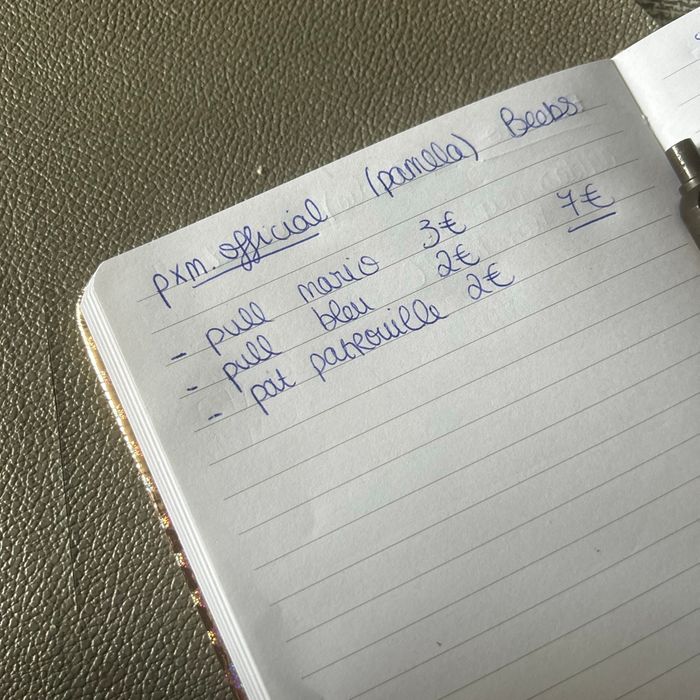 pxm.official (pamela) Beebs
- pull mario 3€ 7€
- pull bleu 2€
- pat patrouille 2€